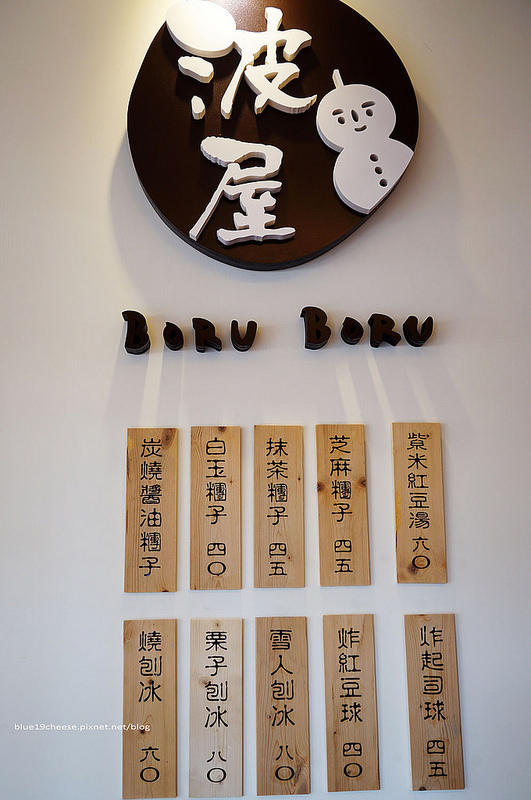 波屋
BORU BORU
炭燒醬油糰子
白玉糰子 四〇
抹茶糰子 四五
芝麻糰子 四五
紫米紅豆湯 六〇
燒刨冰 六〇
栗子刨冰 八〇
雪人刨冰 八〇
炸紅豆球 四〇
炸起司球 四五
blue19cheese.pixnet.net/blog